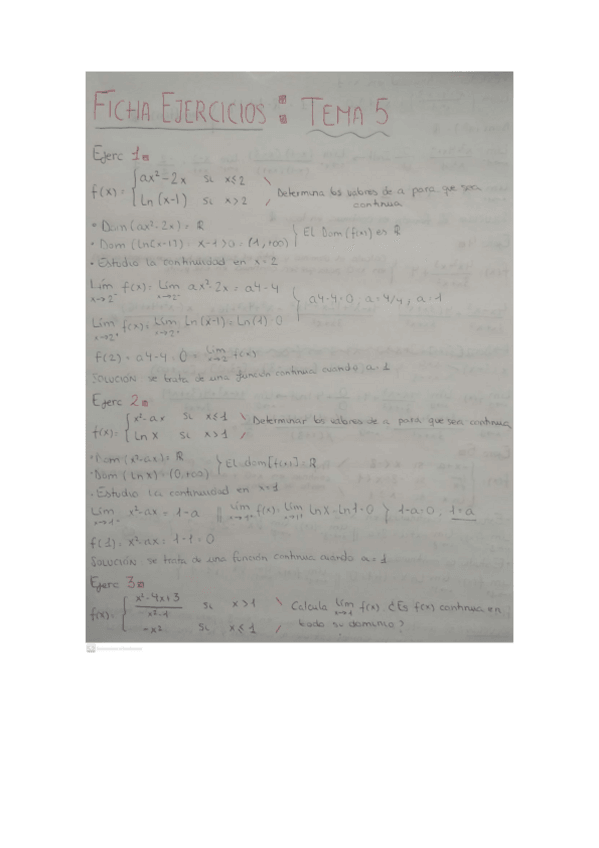 FICHA EJERCICIOS: TEMA 5
Ejerc 1
f(x)= { ax²-2x si x≤2
Ln (x-1) si x>2 Determina los valores de a para que sea continua
• Dom (ax²-2x)= ℝ
• Dom (Ln(x-1)) = x-1>0 = (1,+∞) } El Dom(f(x)) es ℝ
• Estudio la continuidad en x=2
Lím x→2⁻ f(x)= Lím x→2⁻ ax²-2x = a4-4
Lím x→2⁺ f(x)= Lím x→2⁺ Ln(x-1)= Ln(1)=0 } a4-4=0, a=4/4, a=1
f(2)= a4-4=0= lím x→2 f(x)
SOLUCIÓN se trata de una función continua cuando a=1
Ejerc 2
f(x)= { x²-ax si x≤1 Determinar los valores de a para que sea continua
Ln x si x>1
• Dom (x²-ax)= ℝ
• Dom (Ln x)= (0,+∞) } El dom[f(x)]=ℝ
• Estudio la continuidad en x=1
Lím x→1⁻ x²-ax = 1-a || Lím x→1⁺ f(x)= Lím x→1⁺ Ln x = Ln 1=0 } 1-a=0, 1=a
f(1)= x²-ax= 1-1=0
SOLUCIÓN se trata de una función continua cuando a=1
Ejerc 3
f(x)= { x²-4x+3 / x²-1 si x>1 Calcula lím x→1 f(x) ¿Es f(x) continua en
-x² si x≤1 todo su dominio?